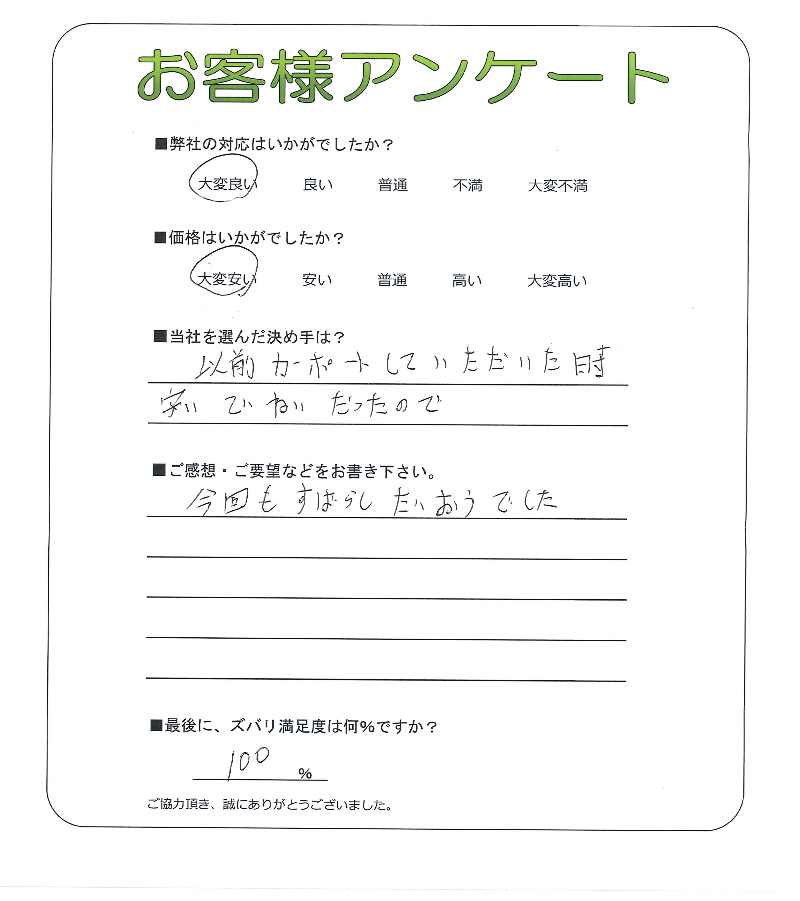 お客様アンケート
■弊社の対応はいかがでしたか？
大変良い 良い 普通 不満 大変不満
■価格はいかがでしたか？
大変安い 安い 普通 高い 大変高い
■当社を選んだ決め手は？
以前 カーポートしていただいた時
安い ていねい だったので
■ご感想・ご要望などをお書き下さい。
今回も すばらし たいおうでした
■最後に、ズバリ満足度は何％ですか？
100 %
ご協力頂き、誠にありがとうございました。